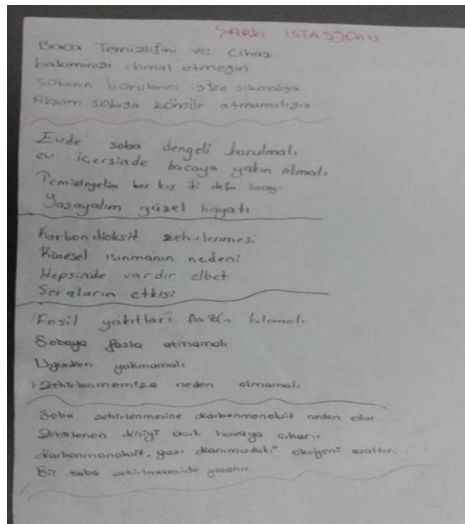 ŞARKI İSTASYONU
Baca Temizliğini ve cihaz
bakımınızı ihmal etmeyin
Sobanın borularını iyice sıkmalıyız
Akşam sobaya kömür atmamalıyız
Evde soba dengeli kurulmalı
ev içersinde bacaya yakın olmalı
Temizleyelim her kış iki defa bacayı
Yaşayalım güzel hayatı
Karbondioksit zehirlenmesi
Küresel ısınmanın nedeni
Hepsinde vardır elbet
Seraların etkisi
Fosil yakıtları fazla
Sobaya fazla atmamalı
Uyurken yakmamalı
Zehirlenmemize neden olmamalı
Soba zehirlenmesine karbonmonoksit neden olur
Zehirlenen kişiyi açık havaya çıkarır
karbonmonoksit gazı oksijeni azaltır
Bir soba zehirlenmesinde